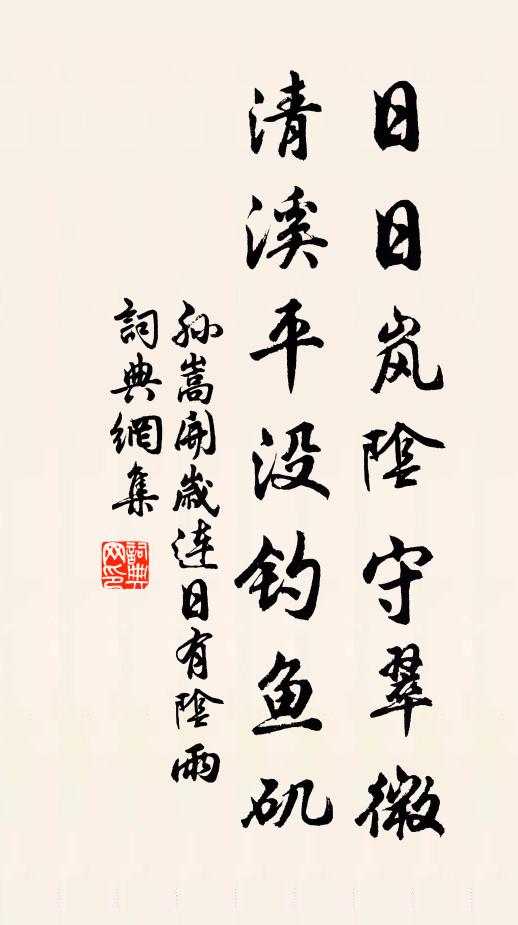 日日岚陰守翠微
清溪平没钓鱼矶
孙嵩開歲连日有陰雨
詞典網集
詞典网印